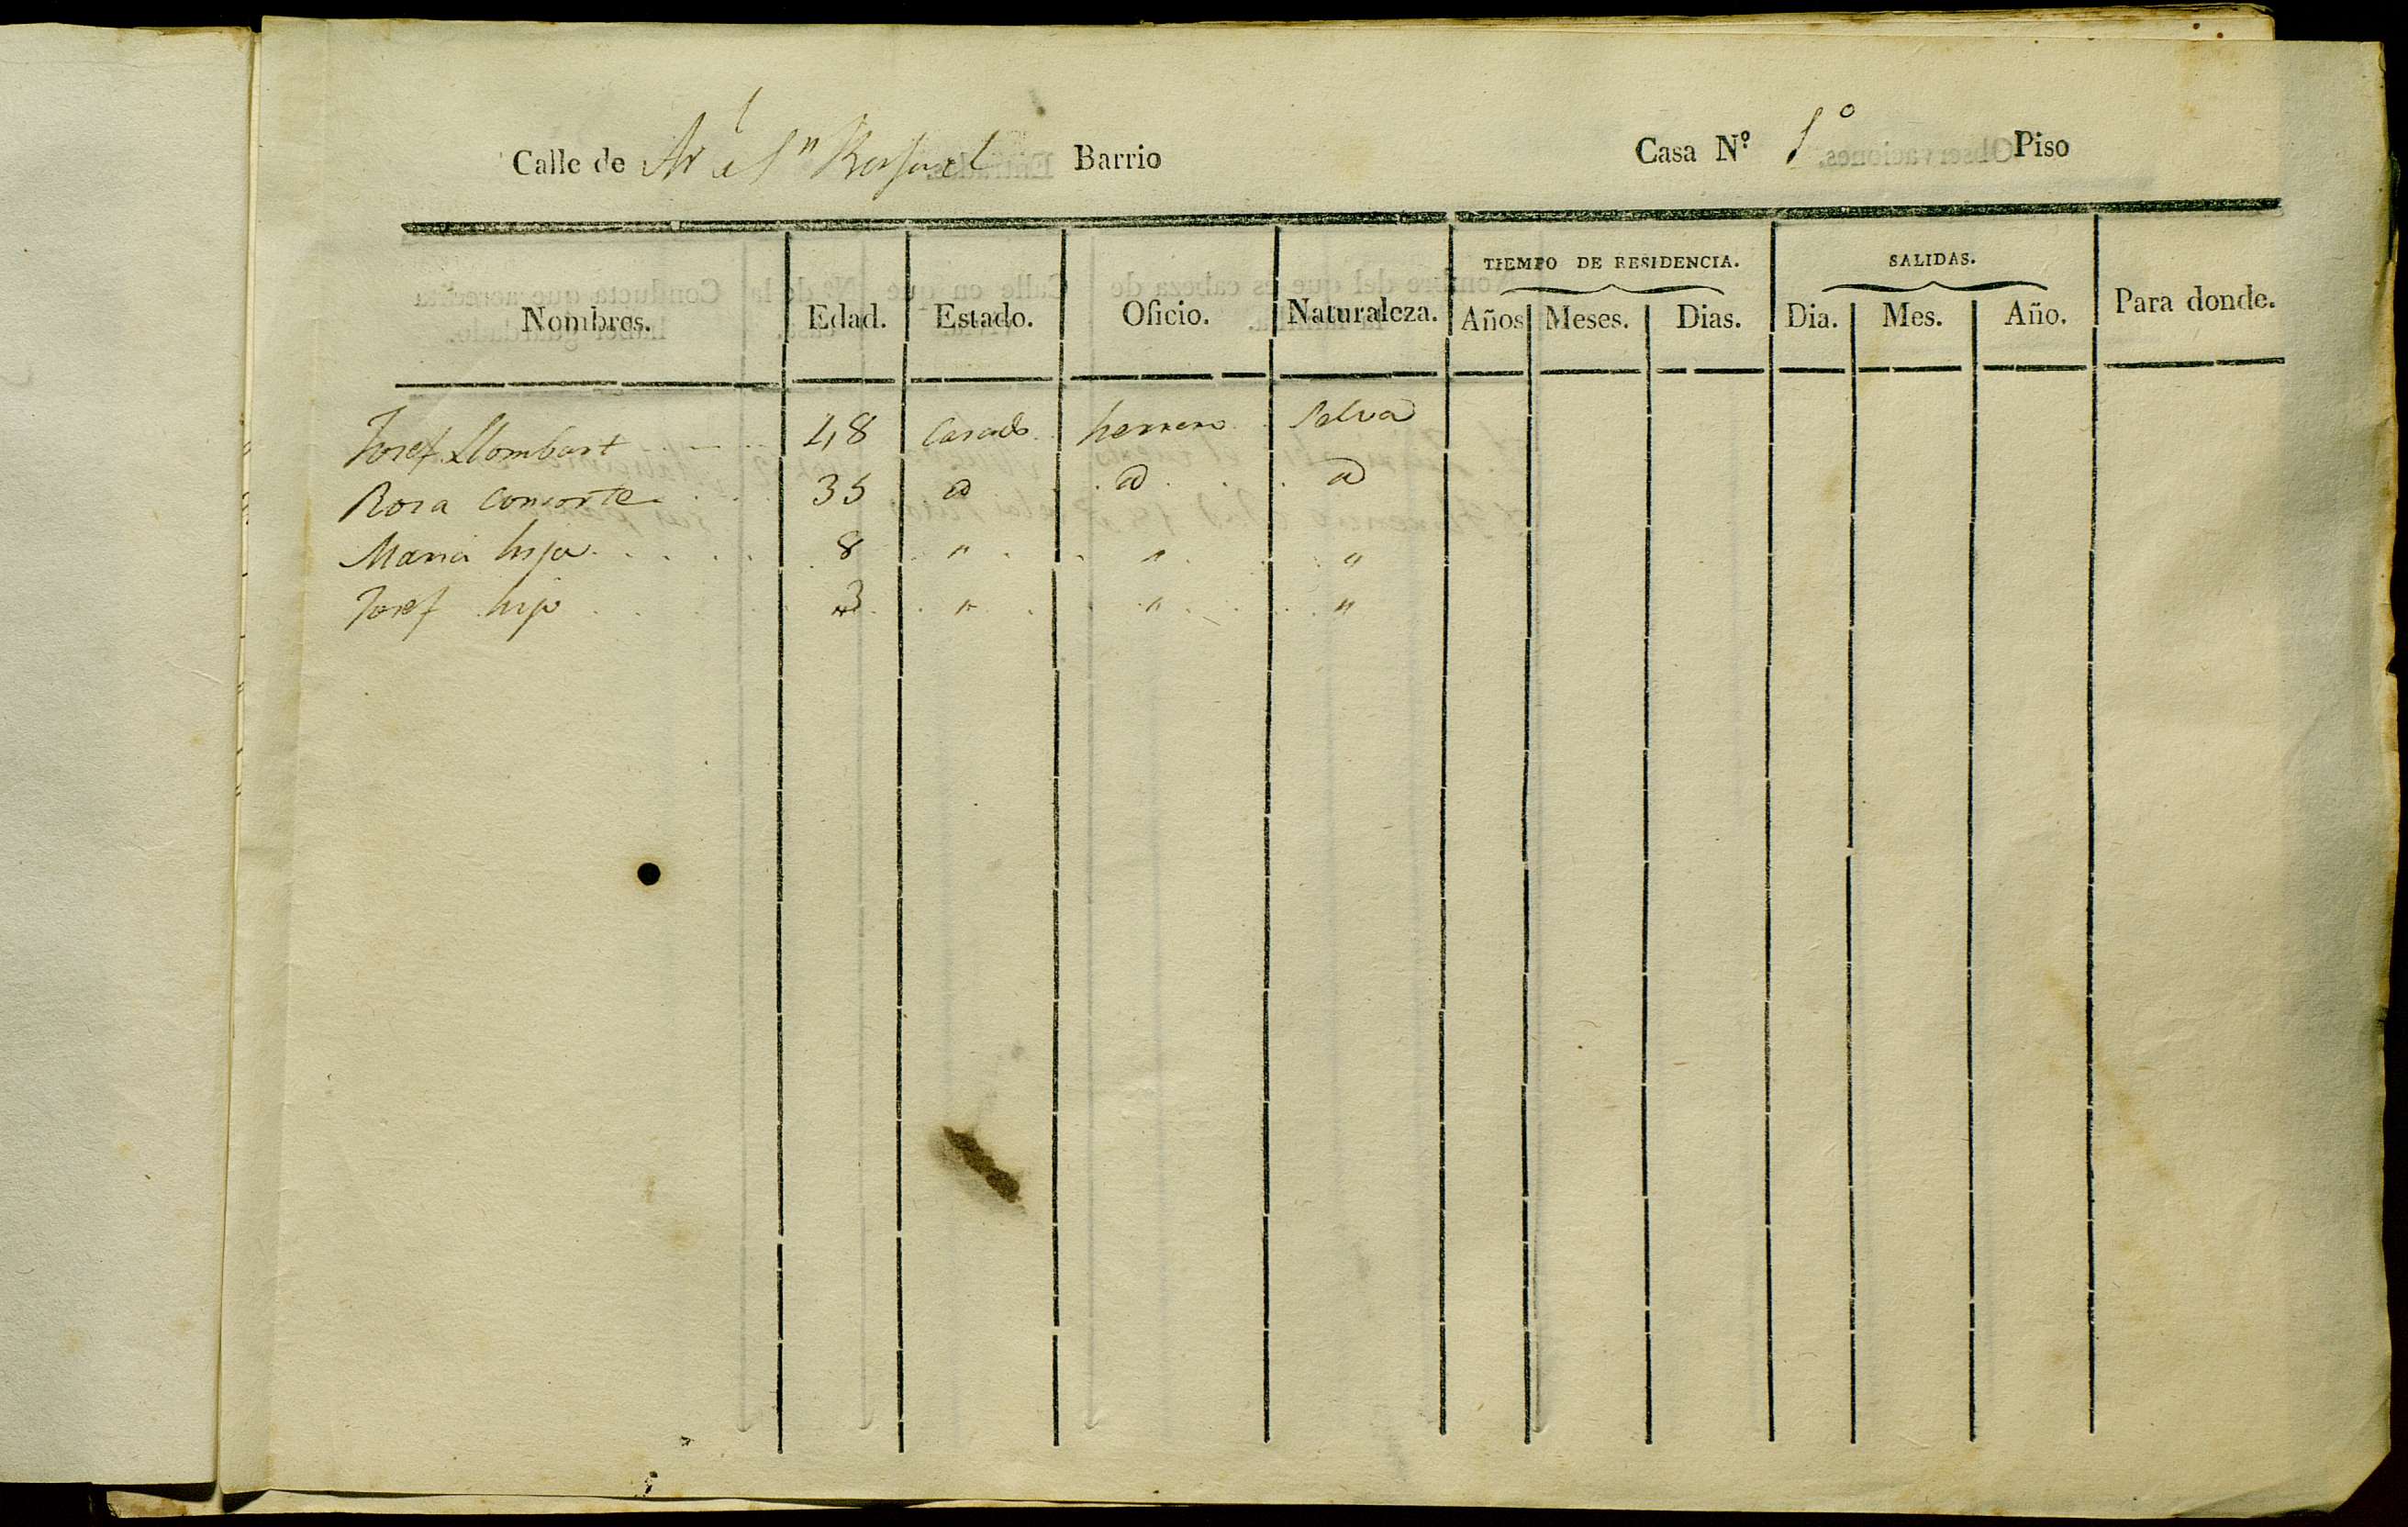 Calle de Sn Rafael Barrio Casa N.º 1º Piso
TIEMPO DE RESIDENCIA. SALIDAS.
Nombres. Edad. Estado. Oficio. Naturaleza. Años Meses. Dias. Dia. Mes. Año. Para donde.
Josef Llombart 48 Casado herrero Selva
Rosa consorte 35 id id id
Maria hija 8 " " "
Josef hijo 3 " " "